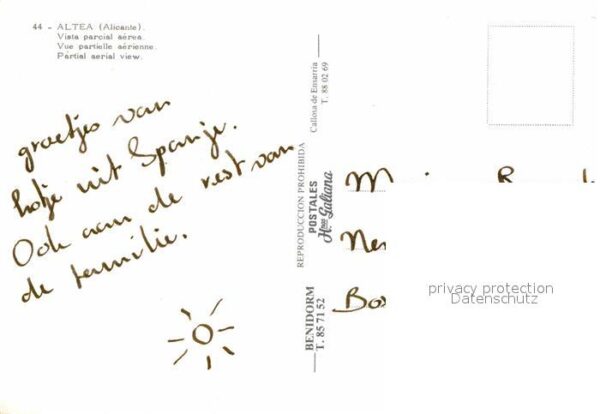 44 - ALTEA (Alicante).
Vista parcial aérea.
Vue partielle aérienne.
Pártial aerial view.
groetjes van
hotje uit Spanje.
Ook aan de rest van
de familie.
BENIDORM
T. 85 71 52
REPRODUCCION PROHIBIDA
POSTALES
Hnos Galiana
Callosa de Ensarria
T. 88 02 69
M R
Ne
Bo
privacy protection
Datenschutz